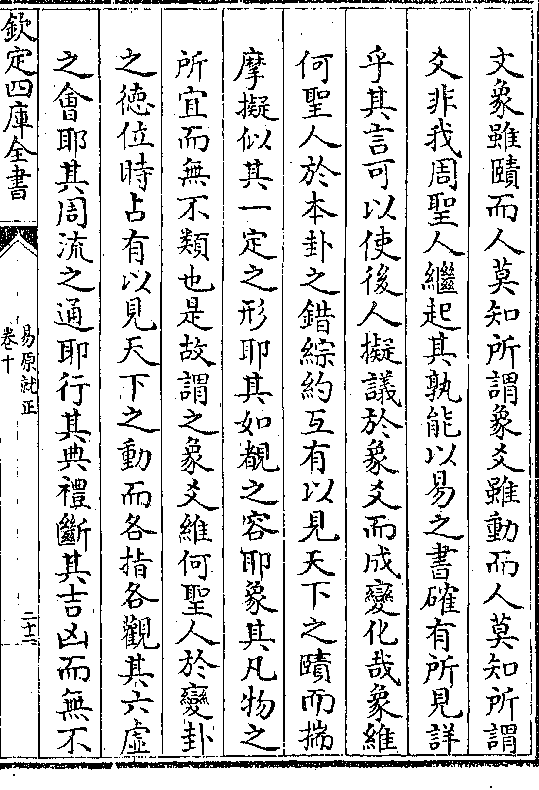 文象雖賾而人莫知所謂象爻雖動而人莫知所謂
爻非我周聖人繼起其孰能以易之書確有所見詳
乎其言可以使後人擬議於象爻而成變化哉象維
何聖人於本卦之錯綜約互有以見天下之賾而揣
摩擬似其一定之形耶其如覩之容耶象其凡物之
所宜而無不類也是故謂之象爻維何聖人於變卦
之德位時占有以見天下之動而各指各觀其六虛
之會耶其周流之通耶行其典禮斷其吉凶而無不
欽定四庫全書
易原就正
卷十
二十三